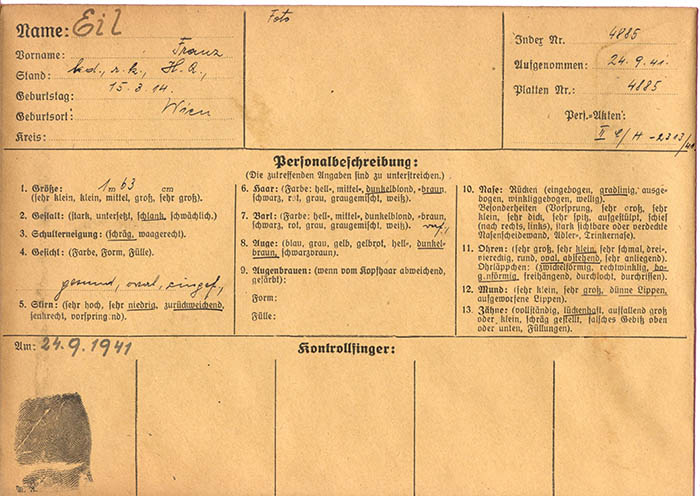 Name: Eil
Vorname: Franz
Stand: led., r.k., H.A.,
Geburtstag: 15.3.14.
Geburtsort: Wien
Kreis:
Foto
Index Nr. 4885
Aufgenommen: 24.9.41.
Platten Nr.: 4885
Pers.-Akten:
II /H -2313/41
Personalbeschreibung:
(Die zutreffenden Angaben sind zu unterstreichen.)
1. Größe: 1 m 63 cm
(sehr klein, klein, mittel, groß, sehr groß).
2. Gestalt: (stark, untersetzt, schlank, schwächlich).
3. Schulterneigung: (schräg, waagerecht).
4. Gesicht: (Farbe, Form, Fülle).
gesund, oval, eingef.,
5. Stirn: (sehr hoch, sehr niedrig, zurückweichend, senkrecht, vorspringend).
6. Haar: (Farbe: hell-, mittel-, dunkelblond, -braun,
schwarz, rot, grau, graugemischt, weiß).
7. Bart: (Farbe: hell-, mittel-, dunkelblond, -braun,
schwarz, rot, grau, graugemischt, weiß).
8. Auge: (blau, grau, gelb, gelbrot, hell-, dunkel-
braun, schwarzbraun).
9. Augenbrauen: (wenn vom Kopfhaar abweichend,
gefärbt):
Form:
Fülle:
10. Nase: Rücken (eingebogen, gradlinig, ausge-
bogen, winkliggebogen, wellig).
Besonderheiten (Vorsprung, sehr groß, sehr
klein, sehr dick, sehr spitz, aufgestülpt, schief
(nach rechts, links), stark sichtbare oder verdeckte
Nasenscheidewand, Adler-, Trinkernase).
11. Ohren: (sehr groß, sehr klein, sehr schmal, drei-,
viereckig, rund, oval, abstehend, sehr anliegend).
Ohrläppchen: (zwickelförmig, rechtwinklig, bo-
genförmig, freihängend, durchlocht, durchrissen).
12. Mund: (sehr klein, sehr groß, dünne Lippen,
aufgeworfene Lippen).
13. Zähne: (vollständig, lückenhaft, auffallend groß
oder klein, schräg gestellt, falsches Gebiß oben
oder unten, Füllungen).
Am: 24.9.1941
Kontrollfinger: